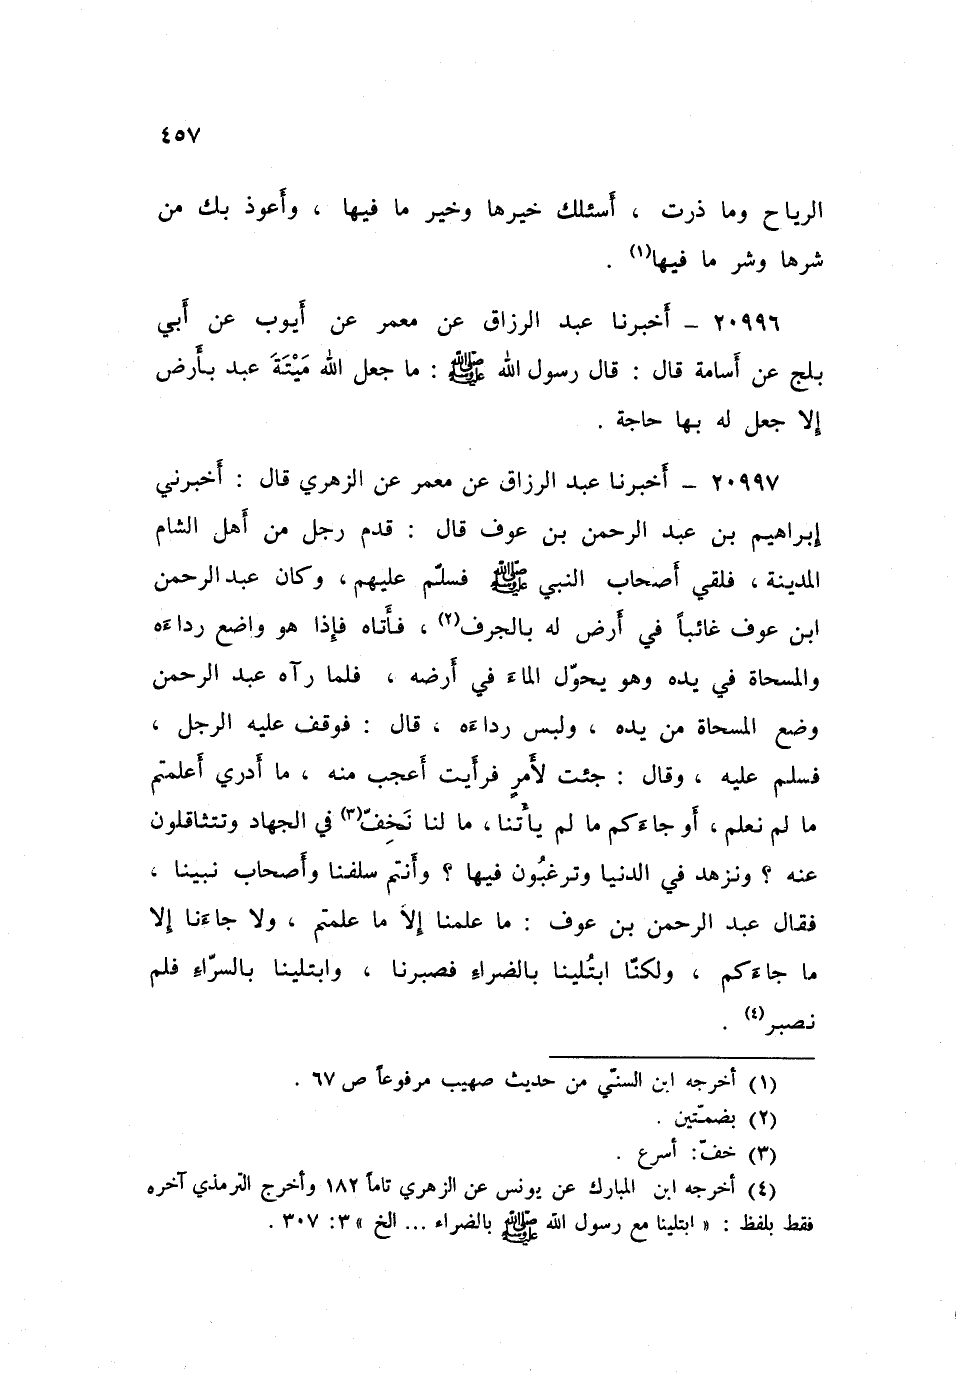 ٤٥٧
الرياح وما ذرت ، أسئلك خيرها وخير ما فيها ، وأعوذ بك من
شرها وشر ما فيها(١) .
٢٠٩٩٦ ــ أخبرنا عبد الرزاق عن معمر عن أيوب عن أبي
بلج عن أسامة قال : قال رسول الله ﷺ : ما جعل الله مَيْتَةَ عبد بأرض
إلا جعل له بها حاجة .
٢٠٩٩٧ ــ أخبرنا عبد الرزاق عن معمر عن الزهري قال : أخبرني
إبراهيم بن عبد الرحمن بن عوف قال : قدم رجل من أهل الشام
المدينة ، فلقي أصحاب النبي ﷺ فسلّم عليهم ، وكان عبد الرحمن
ابن عوف غائباً في أرض له بالجرف(٢) ، فأتاه فإذا هو واضع رداءه
والمسحاة في يده وهو يحوّل الماء في أرضه ، فلما رآه عبد الرحمن
وضع المسحاة من يده ، ولبس رداءه ، قال : فوقف عليه الرجل ،
فسلم عليه ، وقال : جئت لأمرٍ فرأيت أعجب منه ، ما أدري أعلمتم
ما لم نعلم ، أو جاءكم ما لم يأتنا ، ما لنا نَخِفّ(٣) في الجهاد وتتثاقلون
عنه ؟ ونزهد في الدنيا وترغبُون فيها ؟ وأنتم سلفنا وأصحاب نبينا ،
فقال عبد الرحمن بن عوف : ما علمنا إلا ما علمتم ، ولا جاءنا إلا
ما جاءكم ، ولكنّا ابتُلينا بالضراء فصبرنا ، وابتلينا بالسرّاء فلم
نصبر(٤) .
(١) أخرجه ابن السنّي من حديث صهيب مرفوعاً ص ٦٧ .
(٢) بضمّتين .
(٣) خفّ : أسرع .
(٤) أخرجه ابن المبارك عن يونس عن الزهري تاماً ١٨٢ وأخرج الترمذي آخره
فقط بلفظ : « ابتلينا مع رسول الله ﷺ بالضراء ... الخ » ٣ : ٣٠٧ .